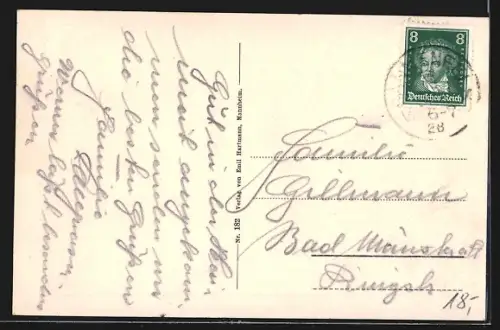 Gut in der Hei-
mat angekom-
men senden wir
die besten Grüßen
Familie
Werner läßt besonders
grüßen
Nr. 182 Verlag von Emil Hartmann, Mannheim.
8 8
Deutsches Reich
6-7
28
Familie
Gillmann
Bad Münster
18,-